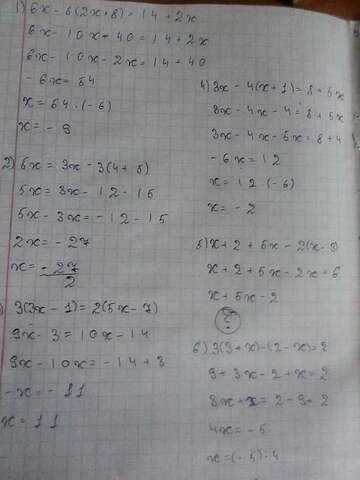 1) 6x - 6(2x+8) = 14 + 2x
6x - 10x - 40 = 14 + 2x
6x - 10x - 2x = 14 + 40
- 6x = 54
x = 54 · (-6)
x = - 9
2) 5x = 3x - 3(4+5)
5x = 3x - 12 - 15
5x - 3x = - 12 - 15
2x = - 27
x = - 27
2
3(3x - 1) = 2(5x - 7)
9x - 3 = 10x - 14
9x - 10x = - 14 + 3
- x = - 11
x = 11
4) 3x - 4(x+1) = 8 + 5x
3x - 4x - 4 = 8 + 5x
3x - 4x - 5x = 8 + 4
- 6x = 12
x = 12 · (-6)
x = - 2
5) x + 2 + 5x - 2(x - 3)
x + 2 + 5x - 2x + 6
x + 5x - 2
?
6) 3(3+x) - (2 - x) = 2
9 + 3x - 2 + x = 2
3x + x = 2 - 9 + 2
4x = - 5
x = (- 5) · 4